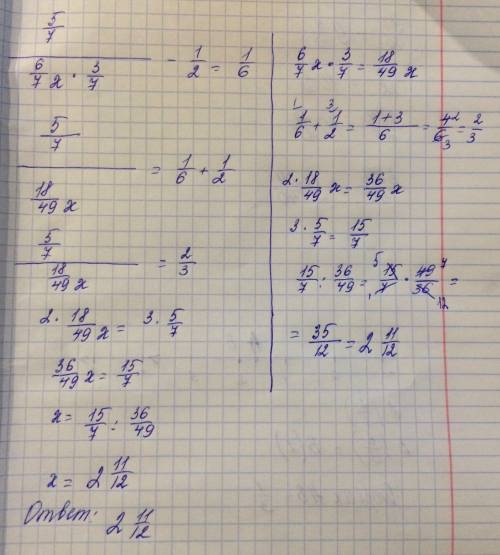 5/7
―――――― − 1/2 = 1/6
6/7 x · 3/7
5/7
―――――― = 1/6 + 1/2
18/49 x
5/7
―――――― = 2/3
18/49 x
2 · 18/49 x = 3 · 5/7
36/49 x = 15/7
x = 15/7 : 36/49
x = 2 11/12
Ответ: 2 11/12
6/7 x · 3/7 = 18/49 x
1/6 + 1/2 = 1+3/6 = 4/6 = 2/3
2 · 18/49 x = 36/49 x
3 · 5/7 = 15/7
15/7 : 36/49 = 15/7 · 49/36 =
= 35/12 = 2 11/12